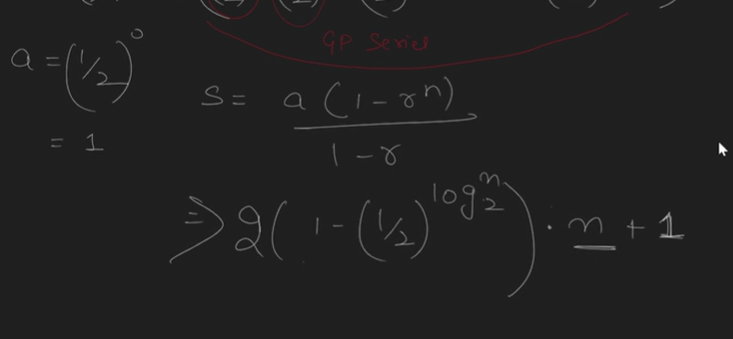 GP Series
a = (1/2)^0
= 1
S = a (1 - r^n)
1 - r
=> 2(1 - (1/2)^log_2^n) · n + 1